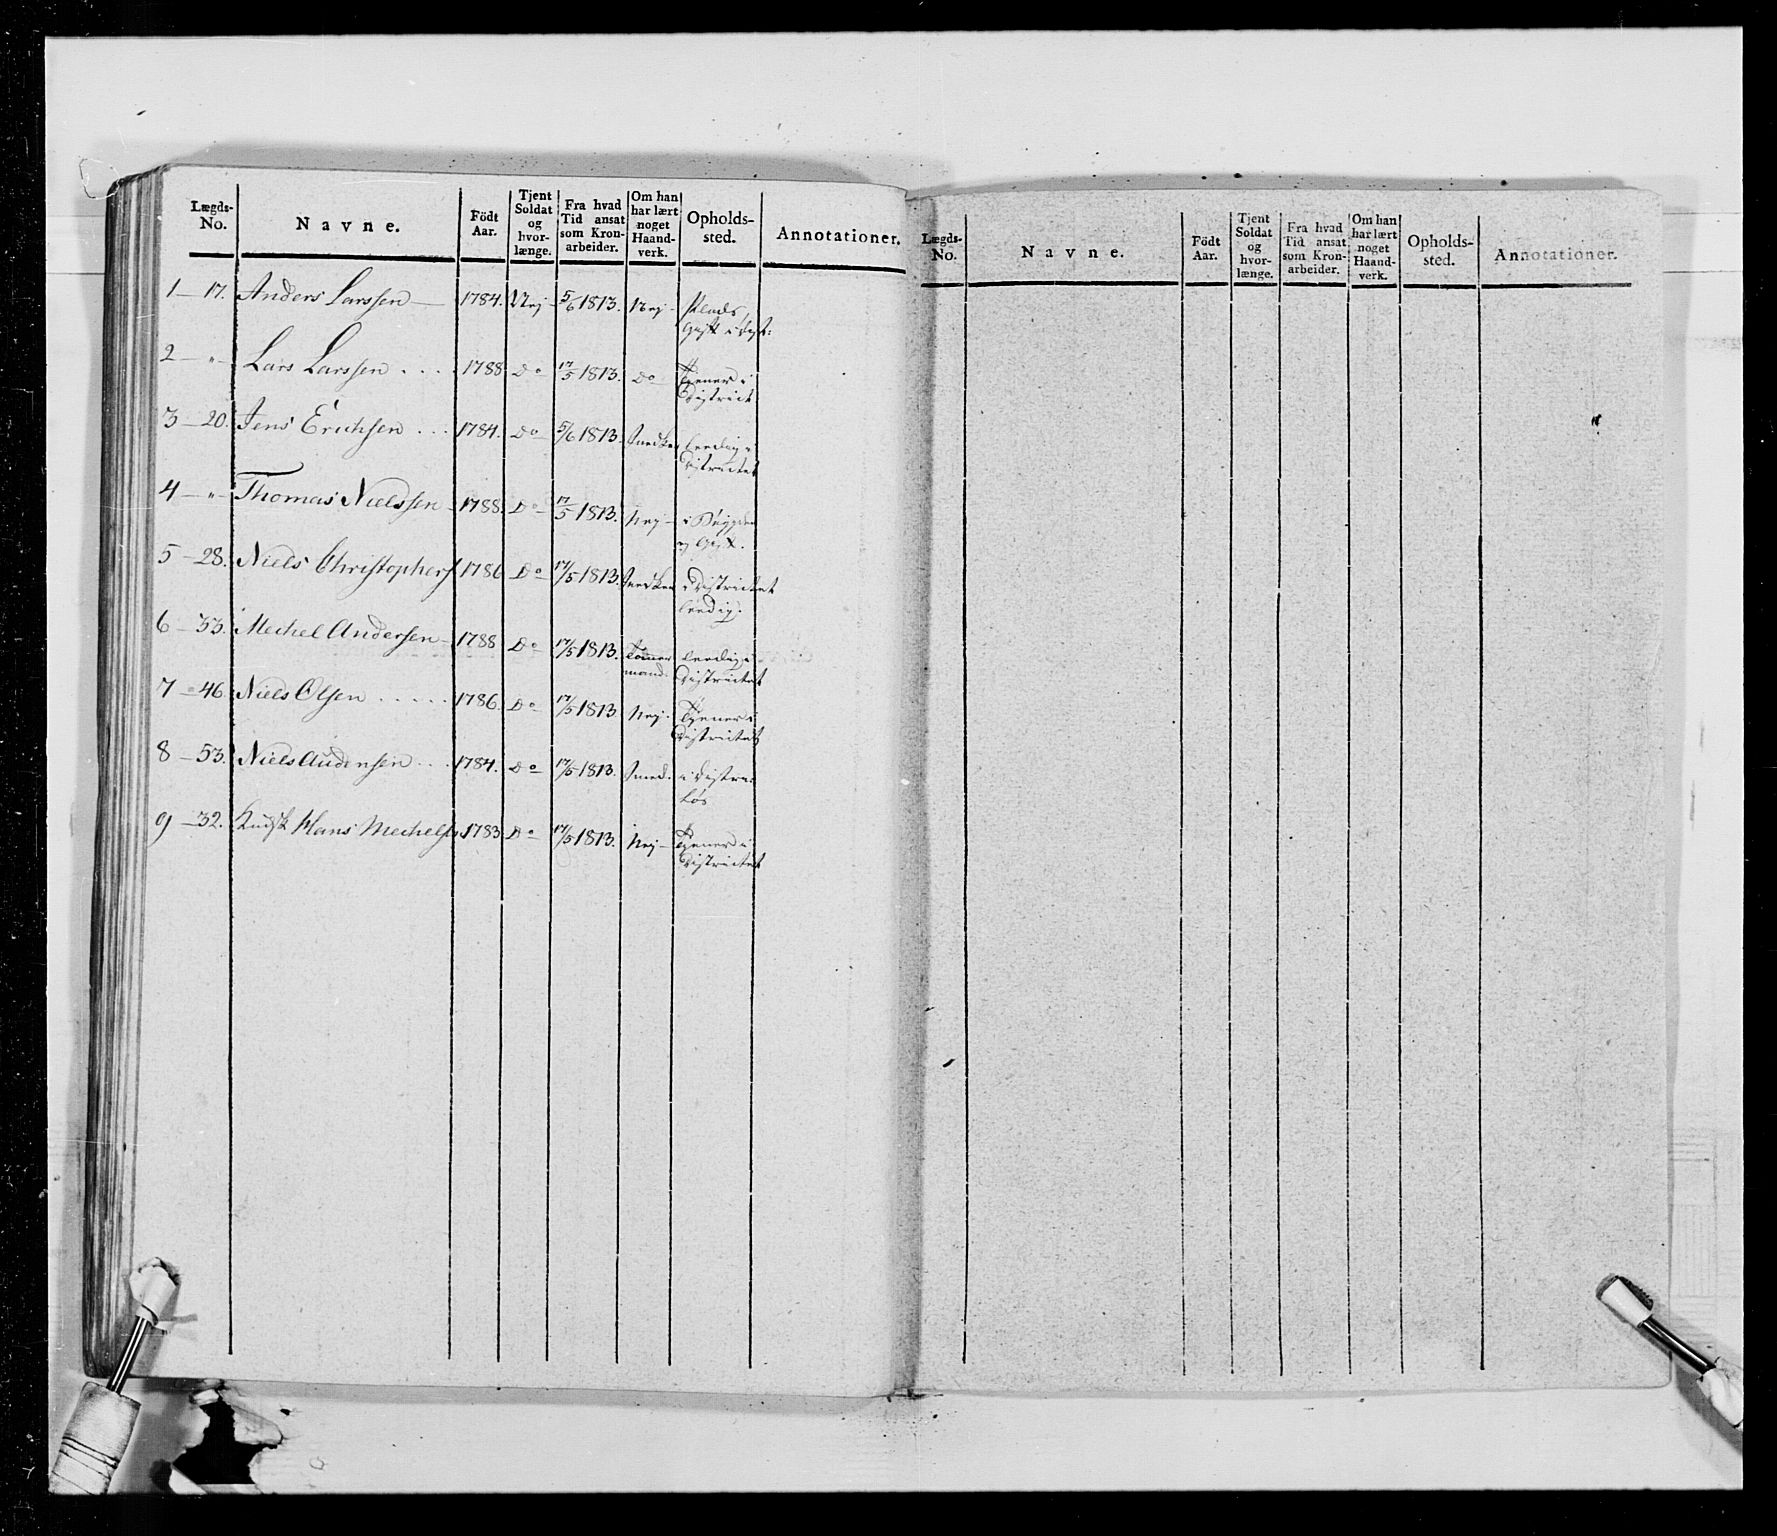 Lægds- No. | Navne. | Födt Aar. | Tjent Soldat og hvor- længe. | Fra hvad Tid ansat som Kron- arbeider. | Om han har lært noget Haand- verk. | Opholds- sted. | Annotationer.
1 — 17. Anders Larssen — 1784. Nej — 5/6 1813. Nej — Plads,
Gift i Dist:
2 — " — Lars Larssen . . . 1788 Do 17/5 1813. Do Tjener i
District
3 — 20. Jens Erichsen . . . 1784. Do 5/6 1813. Snedker leedig i
Districtet
4 — " — Thomas Nielssen — 1788. Do 17/5 1813. Nej — i Bÿgden
og Gift.
5 — 28. Niels Christophers 1786 Do 17/5 1813. Snedker i Districtet
leedig.
6 — 33. Mechel Andersen — 1788 Do 17/5 1813. Tømmer leedig i
mand. Districtet
7 — 46. Niels Olsen . . . . . 1786. Do 17/5 1813 Nej. Tjener i
Districtet
8 — 53. Niels Audensen . . . 1784. Do 17/5 1813. Smed. i Distri:
Løs
9 — 32. Hans Mechels 1783 Do 17/5 1813. Nej — Tjener i
Districtet
Lægds- No. | Navne. | Födt Aar. | Tjent Soldat og hvor- længe. | Fra hvad Tid ansat som Kron- arbeider. | Om han har lært noget Haand- verk. | Opholds- sted. | Annotationer.